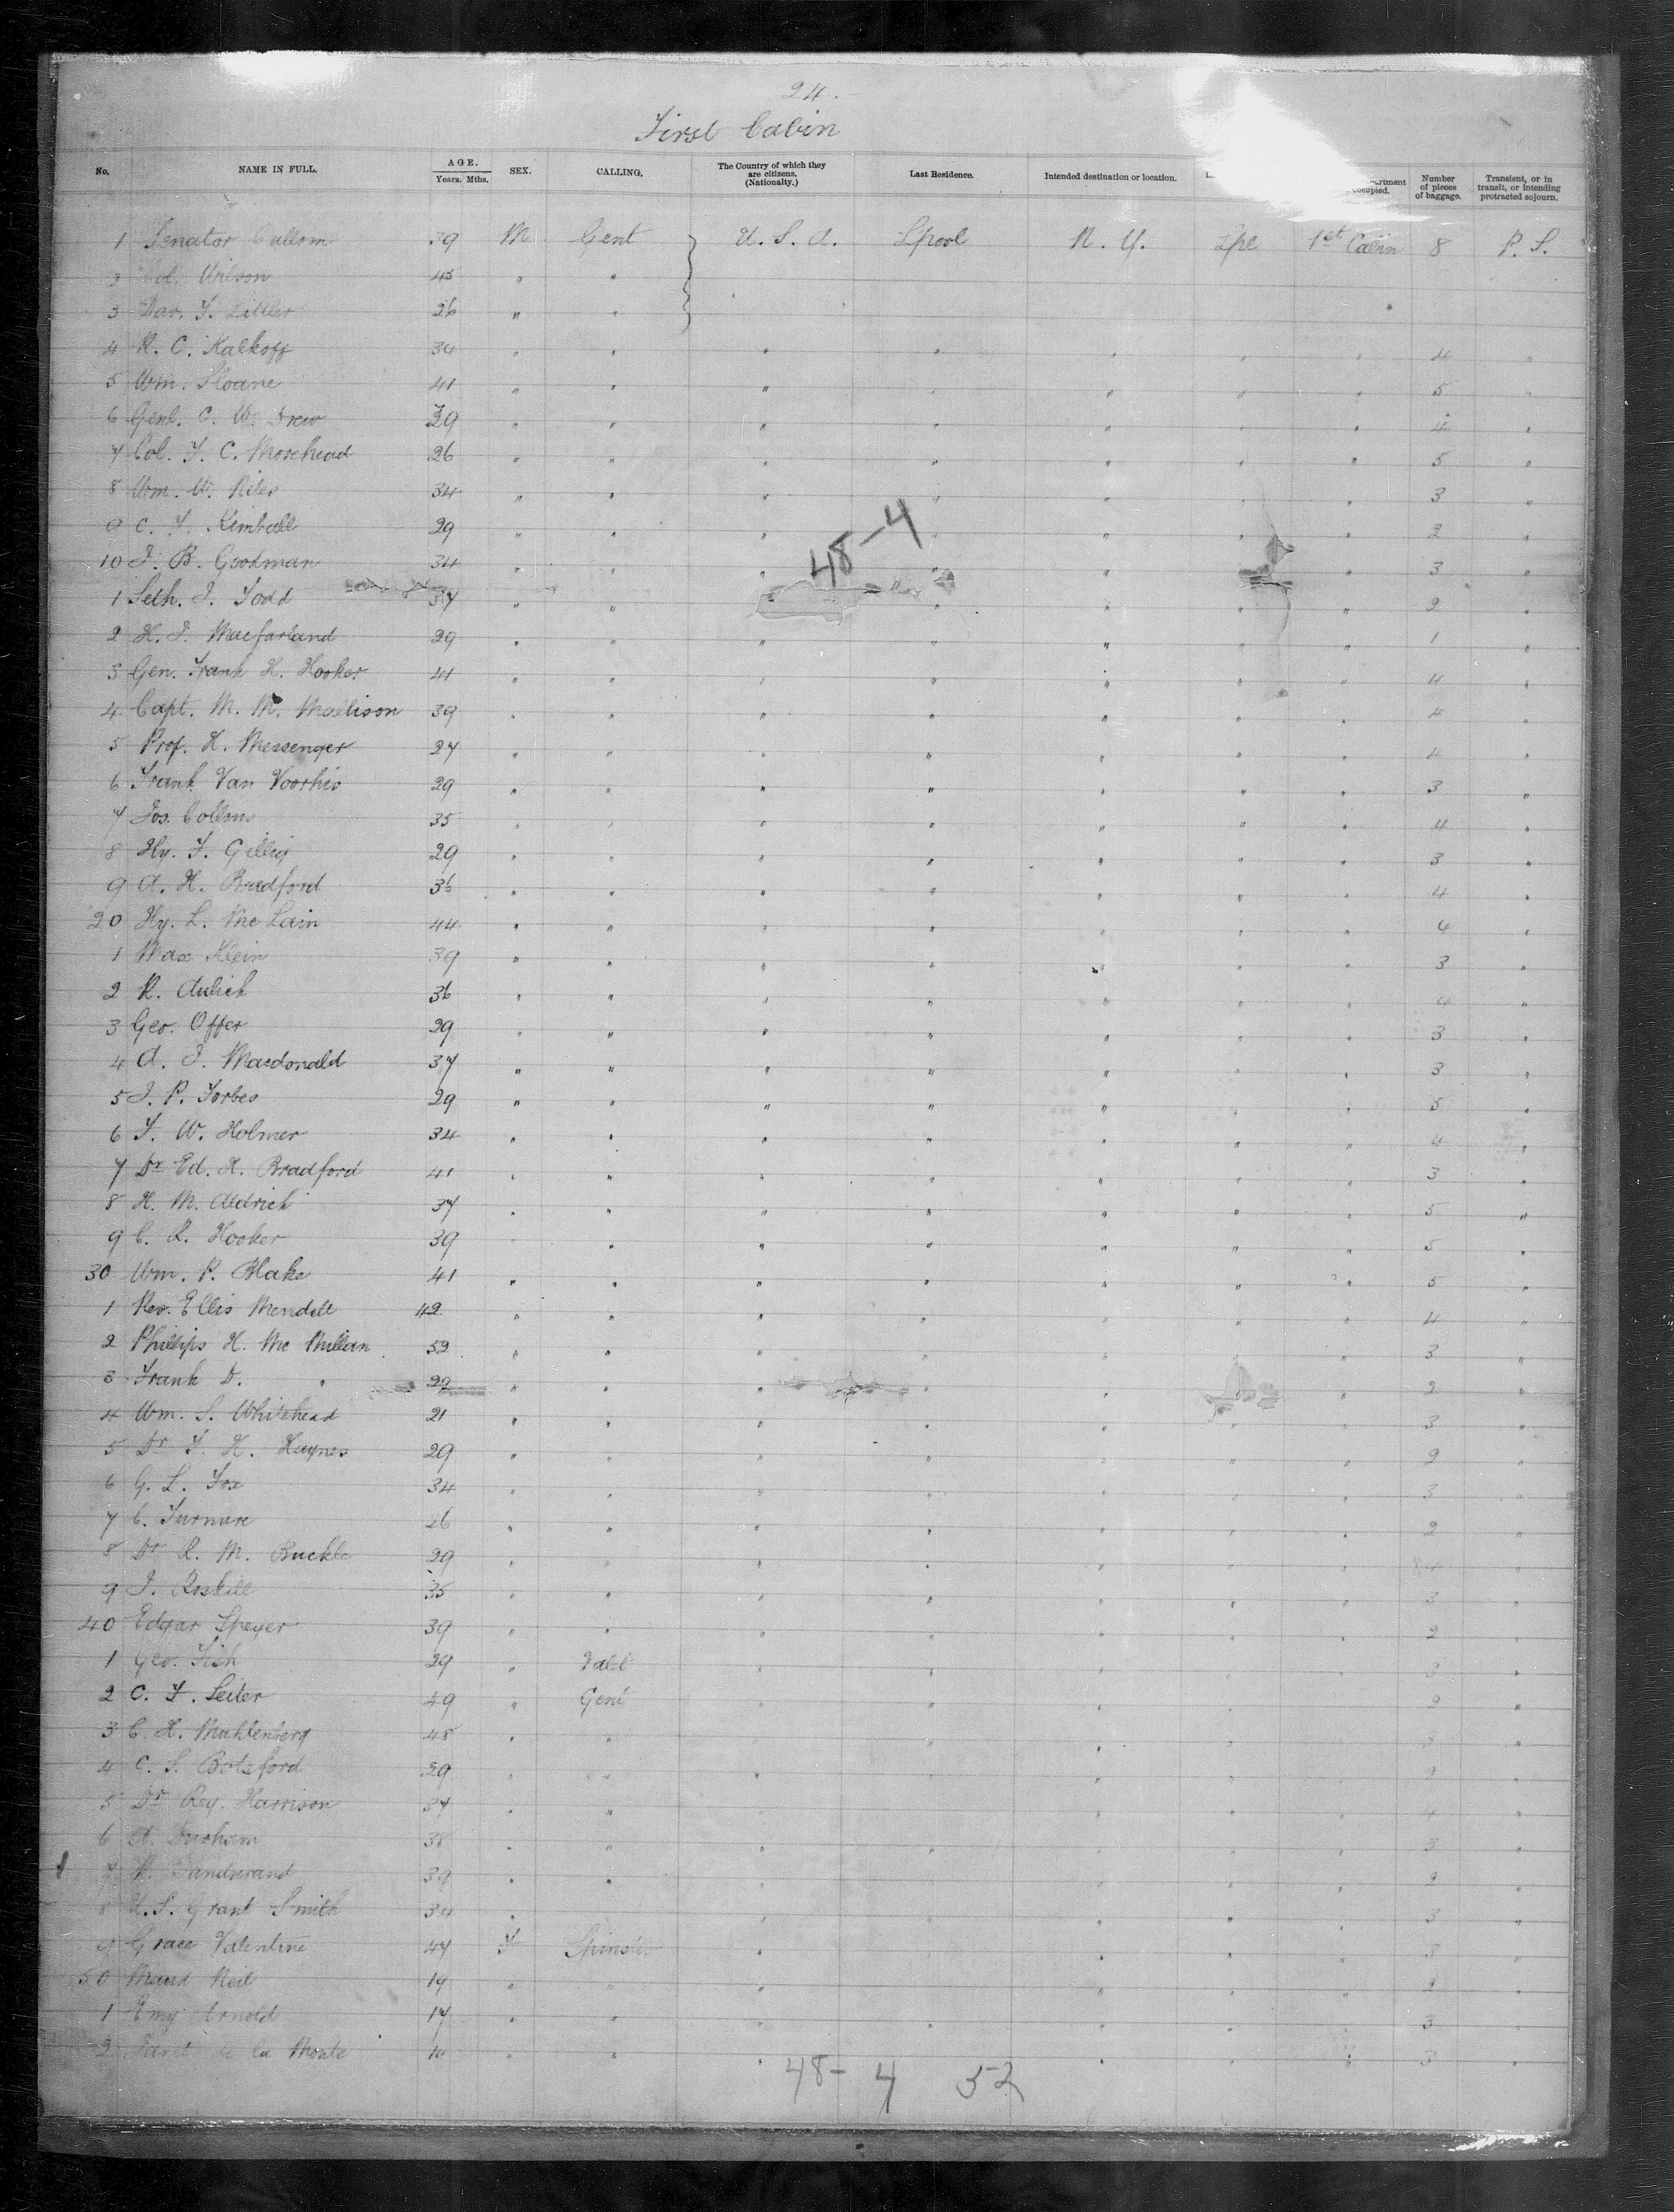 24.
First Cabin
No. NAME IN FULL. AGE. Years. Mths. SEX. CALLING. The Country of which they are citizens. (Nationality.) Last Residence. Intended destination or location. Number of pieces of baggage. Transient, or in transit, or intending protracted sojourn.
1 Senator Cullom 39 M Gent U. S. A. Lpool N. Y. Lpl 1st Cabin 8 P. S.
2 Wilson 45 " "
3 Dav. T. Littler 26 " "
4 R. C. Kalkoff 34 " " " " " " " 4 "
5 Wm. Sloane 41 " " " " " " " 5 "
6 Genl. C. W. Drew 39 " " " " " " " 4 "
7 Col. J. C. Morehead 26 " " " " " " " 5 "
8 Wm. W. Riter 34 " " " " " " " 3 "
9 C. F. Kimball 29 " " " " " " " 2 "
10 J. B. Goodman 34 " " " " " " " 3 "
48-4
1 Seth. J. Todd 37 " " " " " " " 2 "
2 H. J. Macfarland 29 " " " " " " " 1 "
3 Gen. Frank H. Hooker 41 " " " " " " " 4 "
4 Capt. M. M. Mallison 39 " " " " " " " 4 "
5 Prof. H. Messenger 27 " " " " " " " 4 "
6 Frank Van Voorhis 29 " " " " " " " 3 "
7 Jos. Collins 35 " " " " " " " 4 "
8 Hy. F. Gillig 29 " " " " " " " 3 "
9 A. H. Bradford 36 " " " " " " " 4 "
20 Hy. L. McLain 44 " " " " " " " 4 "
1 Max Klein 39 " " " " " " " 3 "
2 R. Aulich 36 " " " " " " " 4 "
3 Geo. Offer 29 " " " " " " " 3 "
4 A. J. Macdonald 37 " " " " " " " 3 "
5 J. P. Forbes 29 " " " " " " " 5 "
6 F. W. Holmer 34 " " " " " " " 4 "
7 Dr Ed. H. Bradford 41 " " " " " " " 3 "
8 H. M. Aldrich 37 " " " " " " " 5 "
9 C. R. Hooker 39 " " " " " " " 5 "
30 Wm. P. Blake 41 " " " " " " " 5 "
1 Rev. Ellis Mendell 42 " " " " " " " 4 "
2 Phillips H. McMillan 52 " " " " " " " 3 "
3 Frank D. " 29 " " " " " " " 2 "
4 Wm. S. Whitehead 21 " " " " " " " 3 "
5 Dr F. H. Haynes 29 " " " " " " " 2 "
6 G. L. Fox 34 " " " " " " " 3 "
7 C. Furnure 26 " " " " " " " 2 "
8 Dr R. M. Buckle 29 " " " " " " " 4 "
9 J. Roskill 35 " " " " " " " 3 "
40 Edgar Speyer 39 " " " " " " " 2 "
1 Geo. Fish 29 " " " " " " 3 "
2 C. F. Leiter 49 " Gent " " " " " 2 "
3 C. H. Muhlenberg 48 " " " " " " " 3 "
4 C. S. Botsford 29 " " " " " " " 2 "
5 Dr Reg. Harrison 37 " " " " " " " 4 "
6 A. Durham 38 " " " " " " " 3 "
7 Dandurand 39 " " " " " " " 2 "
8 U. S. Grant Smith 34 " " " " " " " 3 "
9 Grace Valentine 47 F Spinster " " " " " 3 "
50 Maud Neil 19 " " " " " " " 2 "
1 Emy Arnold 17 " " " " " " " 3 "
2 de la Monte " " " " " " " 3 "
48- 4 52